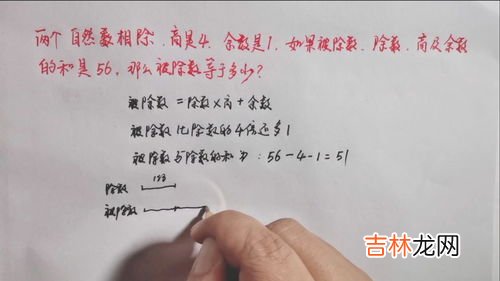 两个自然数相除，商是4，余数是1，如果被除数、除数、商及余数
的和是56，那么被除数等于多少？
被除数 = 除数×商 + 余数
被除数比除数的4倍还多1
被除数与除数的和为：56-4-1=51
1份
除数
被除数
吉林龙网